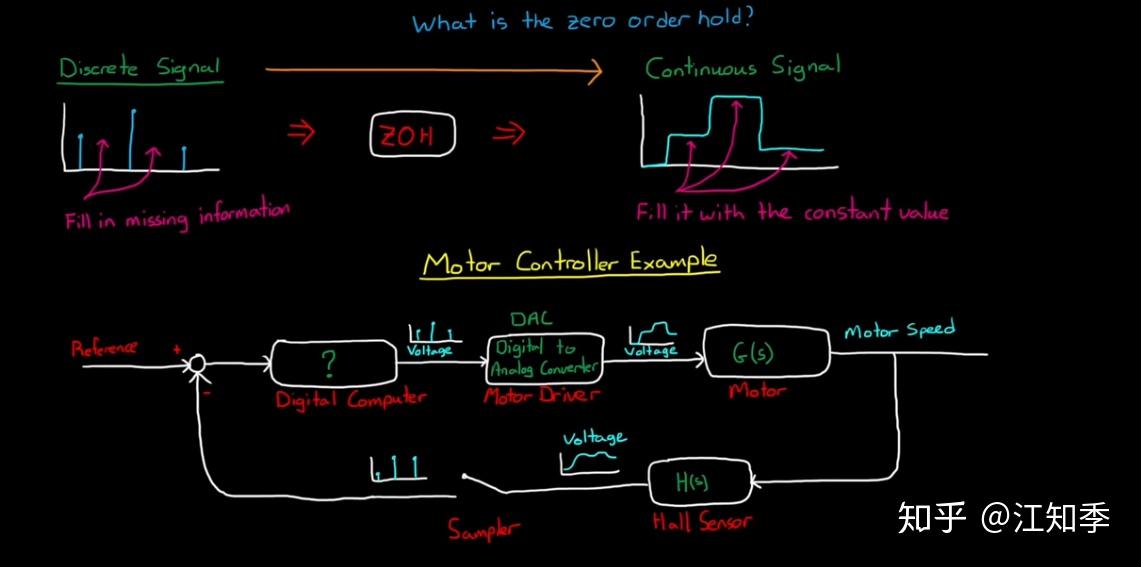 What is the zero order hold?
Discrete Signal
Continuous Signal
ZOH
Fill in missing information
Fill it with the constant value
Motor Controller Example
Reference
+
-
?
Digital Computer
Voltage
DAC
Digital to
Analog Converter
Motor Driver
Voltage
G(s)
Motor
Motor Speed
Voltage
H(s)
Hall Sensor
Sampler
知乎 @江知季